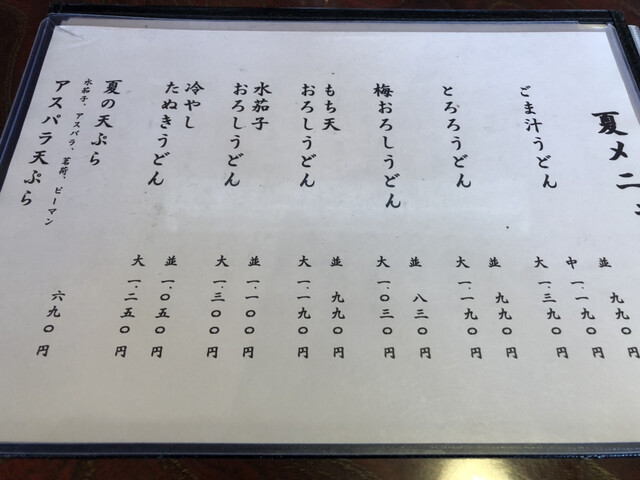 夏メニ
ごま汁うどん
並 九九〇円
中 一、一九〇円
大 一、三九〇円
とろろうどん
並 九九〇円
大 一、一九〇円
梅おろしうどん
並 八三〇円
大 一、〇三〇円
もち天
おろしうどん
並 九九〇円
大 一、一九〇円
水茄子
おろしうどん
並 一、一〇〇円
大 一、三〇〇円
冷やし
たぬきうどん
並 一、〇五〇円
大 一、二五〇円
夏の天ぷら
水茄子、アスパラ、茗荷、ピーマン
アスパラ天ぷら
六九〇円